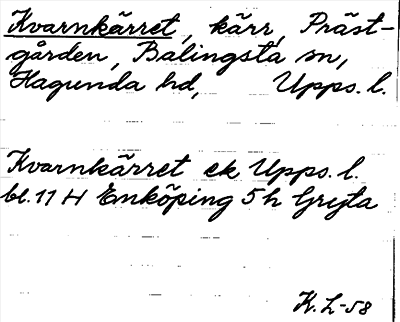 Kvarnkärret, kärr, Präst-
gården, Balingsta sn,
Hagunda hd, Upps. l.
Kvarnkärret ek Upps. l.
bl. 11 H Enköping 5 h Gryta
K.L-58